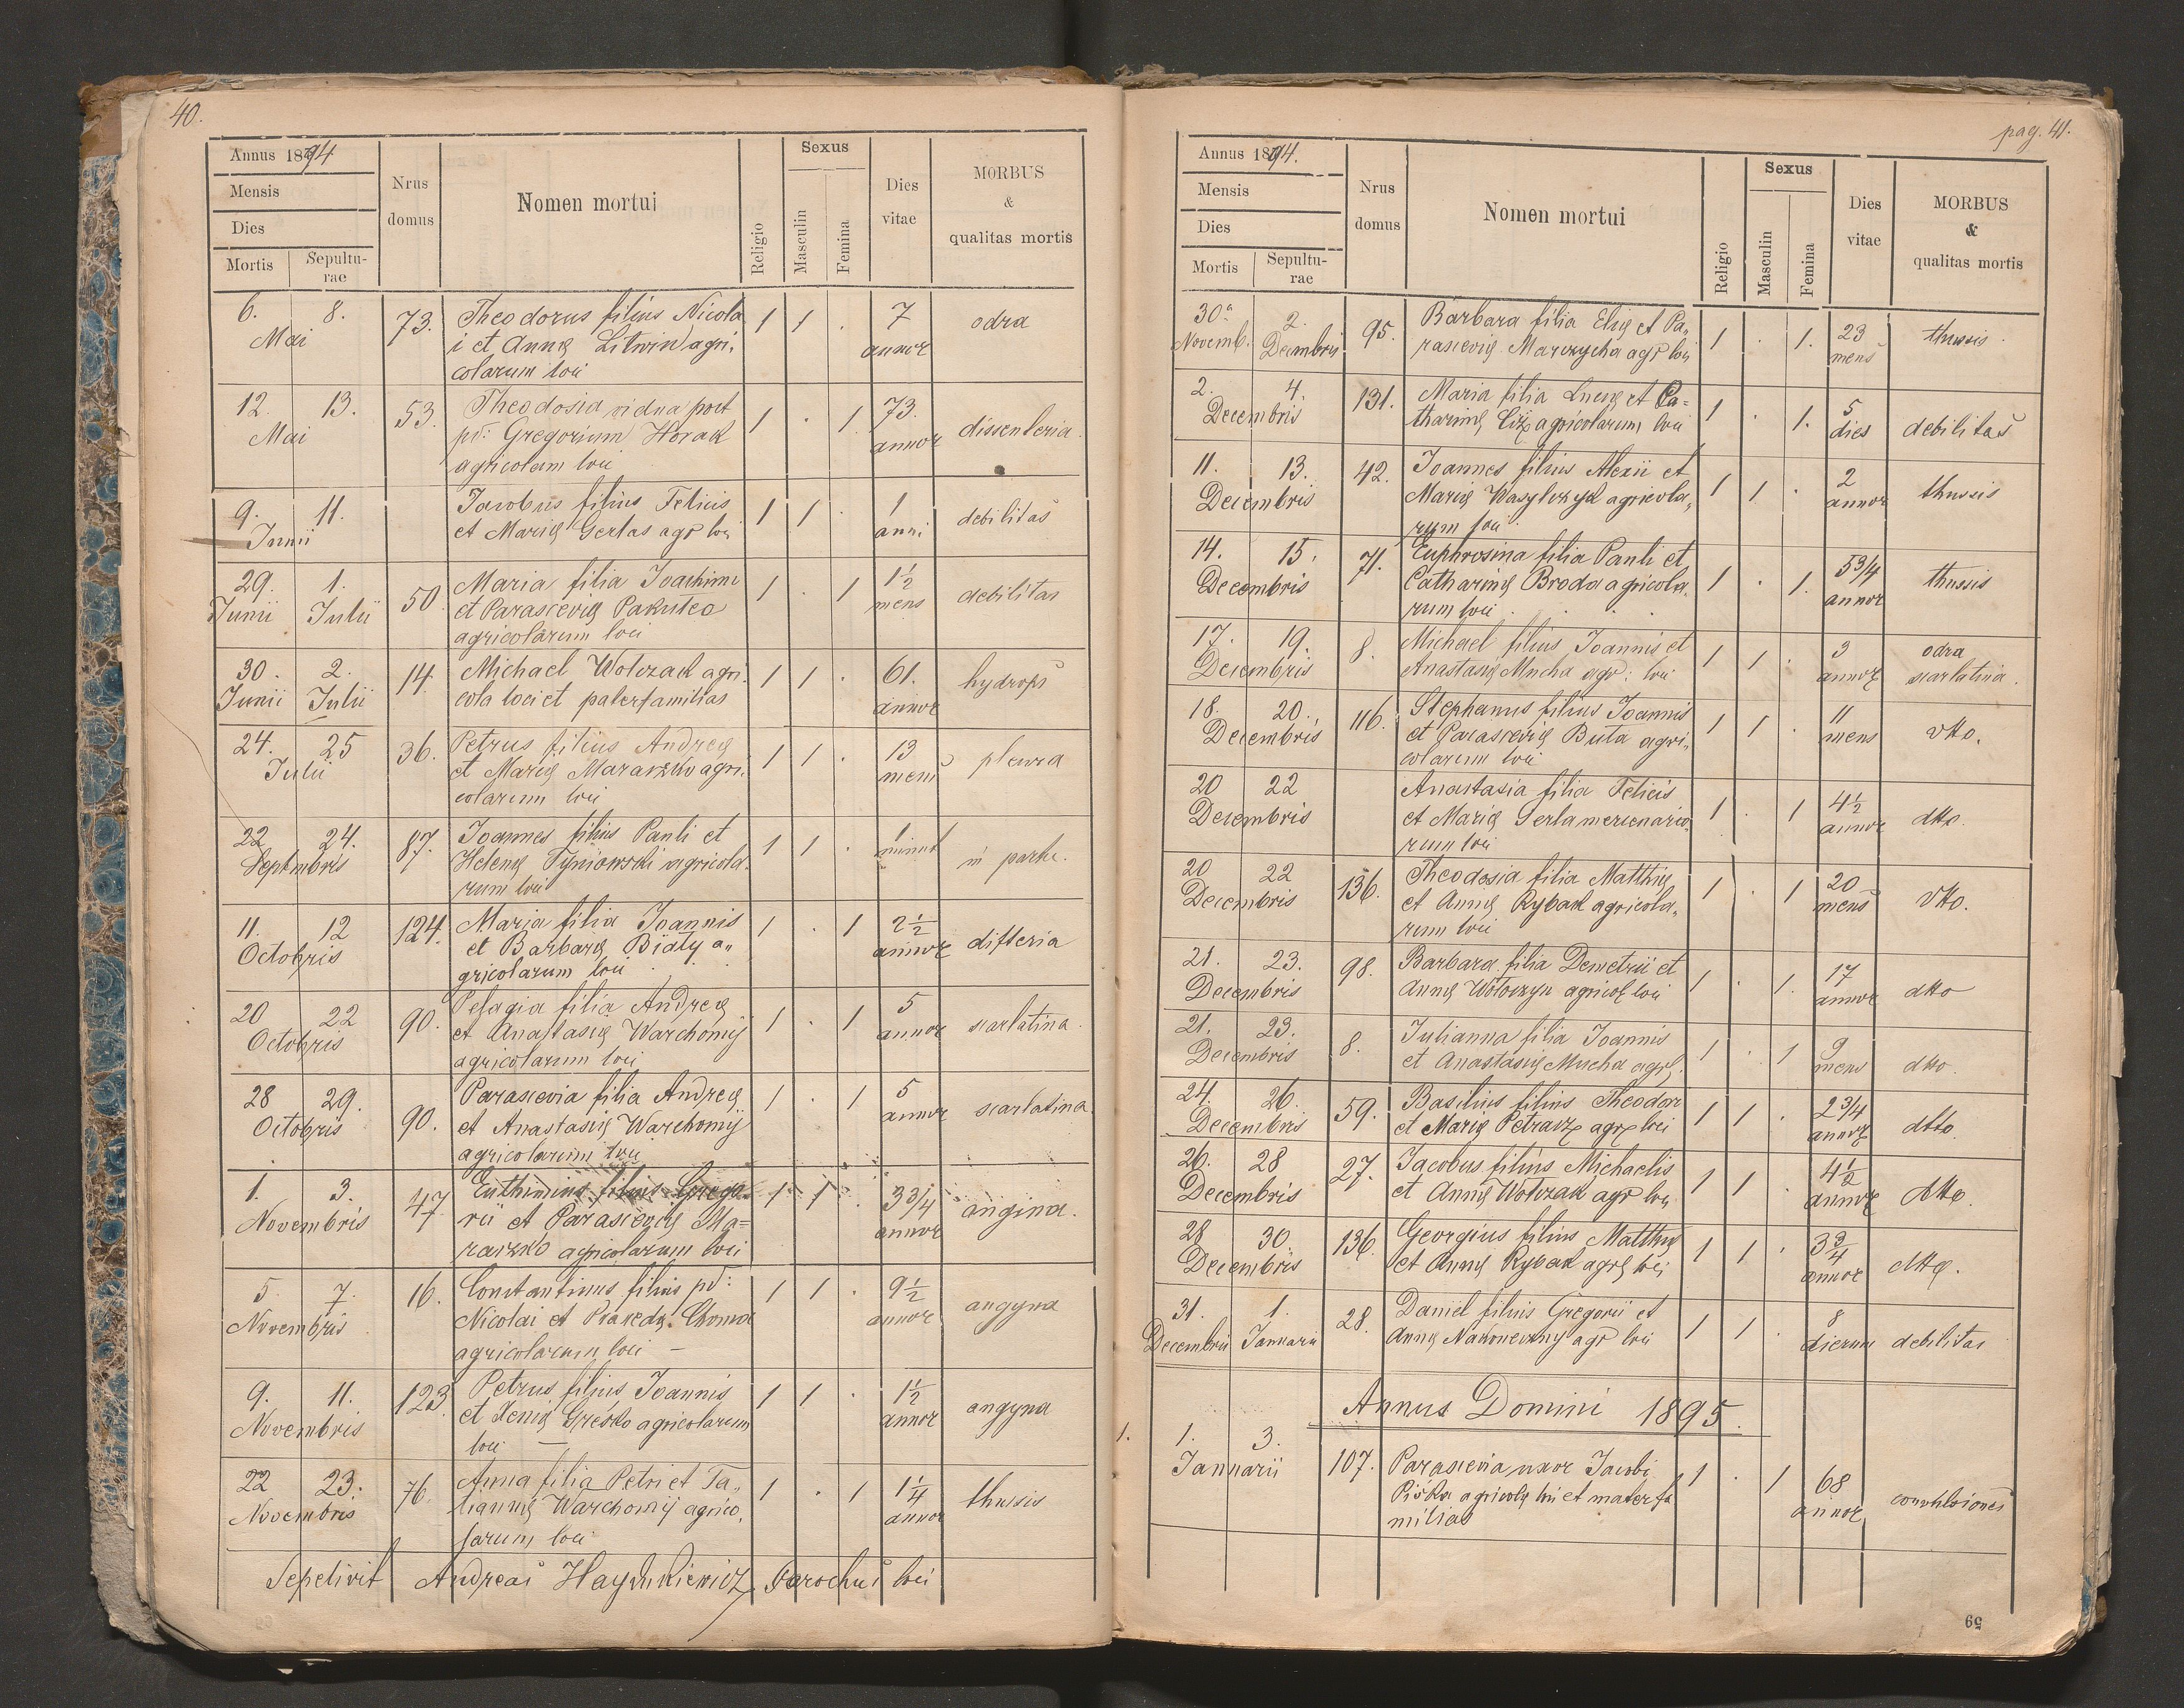 40.
Annus 1894
Mensis
Dies
Mortis Sepultu-
rae
Nrus
domus
Nomen mortui
Religio
Sexus
Masculin
Femina
Dies
vitae
MORBUS
&
qualitas mortis
6. 8. 73. Theodorus filius Nicola 1 1 . 7 odra
Mai i et Annę Litwin agri, annor
colarum loci
12. 13. 53. Theodosia vidua post 1 . 1 73. dissenteria
Mai pd: Gregorium Horak annor
agricolam loci
9. 11. Jacobus filius Felicis 1 1 . 1 debilitas
Junii et Marię Gerlas agr loci anni
29. 1. 50 Maria filia Joachimi 1 . 1 1½ debilitas
Junii Julii et Parascevię Pakuteo mens
agricolarum loci
30. 2. 14. Michael Wołczak agri 1 1 . 61. hydrops
Junii Julii cola loci et paterfamilias annor
24. 25 36. Petrus filius Andreę 1 1 . 13 pleura
Julii et Marię Maraczko agri mens
colarum loci
22 24. 87. Joannes filius Pauli et 1 1 . minut in partu.
Septmbris Helenę Tyniowski agricola
rum loci
11. 12 124. Maria filia Joannis 1 . 1 2½ difteria
Octobris et Barbarę Biały a„ annor
gricolarum loci
20 22 90. Pelagia filia Andreę 1 . 1 5 scarlatina.
Octobris et Anastasię Warchomij annor
agricolarum loci
28 29. 90. Parascevia filia Andreę 1 . 1 5 scarlatina.
Octobris et Anastasię Warchomij annor
agricolarum loci
1. 3. 47. Euthimius filius Grego 1 1 . 3¾ angina.
Novembris rii et Parascevię Ma= annor
raczko agricolarum loci
5. 7. 16. Constantinus filius pd: 1 1 . 9½ angyna
Novembris Nicolai et Praxedę Choma annor
agricolarum loci —
9. 11. 123 Petrus filius Joannis 1 1 . 1½ angyna
Novembris et Xenię Gresko agricolarum annor
loci —
22 23. 76. Anna filia Petri et Ta„ 1 . 1 1¼ thussis
Novembris tiannę Warchomij agrico, annor
larum loci
Sepelivit Andreas Parochus loci
pag. 41.
Annus 1894.
Mensis
Dies
Mortis Sepultu-
rae
Nrus
domus
Nomen mortui
Religio
Sexus
Masculin
Femina
Dies
vitae
MORBUS
&
qualitas mortis
30a 2. 95. Barbara filia Elię et Pa„ 1 . 1. 23 thussis
Novemb. Decembris rascevię Marczycha agr loci mens
2. 4. 131. Maria filia Lucę et Ca= 1 . 1. 5 debilitas
Decembris tharinę agricolarum loci dies
11. 13. 42. Joannes filius Alexii et 1 1 . 2 thussis
Decembris Marię Wasylczyk agricola„ annor
rum loci
14. 15. 71. Euphrosina filia Pauli et 1 . 1. 5¾ thussis
Decembris Catharinę Broda agricola. annor
rum loci
17. 19. 8. Michael filius Joannis et 1 1 . 3 odra
Decembris Anastasię Mucha agr: loci annor scarlatina.
18. 20. 116. Stephanus filius Joannis 1 1 . 11 dto.
Decembris et Parascevię Buta agri„ mens
colarum loci
20 22 Anastasia filia Felicis 1 . 1 4½ dto.
Decembris et Marię Gerla mercenario annor
rum loci
20 22 136. Theodosia filia Matthię 1 . 1 20 dto.
Decembris et Annę Rybak agricola„ mens
rum loci
21. 23. 98. Barbara filia Demetrii et 1 . 1. 17 dto
Decembris Annę Wołoczyn agricol loci annor
21. 23. 8. Julianna filia Joannis 1 . 1 9 dto.
Decembris et Anastasię Mucha agr mens
24. 26. 59. Basilius filius Theodori 1 1 . 2¾ dtto.
Decembris et Marię Petracz agr loci annor
26. 28 27. Jacobus filius Michaelis 1 1 . 4½ dtto.
Decembris et Annę Wołczak agr loci annor
28 30. 136. Georgius filius Matthię 1 1 . 3¾ dtto.
Decembris et Annę Rybak agr loci annor
31. 1. 28. Daniel filius Gregorii et 1 1 . 8 debilitas
Decembris Januarii Annę Nakoneczny agr loci dierum
Annus Domini 1895.
1. 1. 3. 107. Parascevia uxor Jacobi 1 . 1 68 convulsiones
Januarii Piska agricolę loci et materfa annor
milias
59